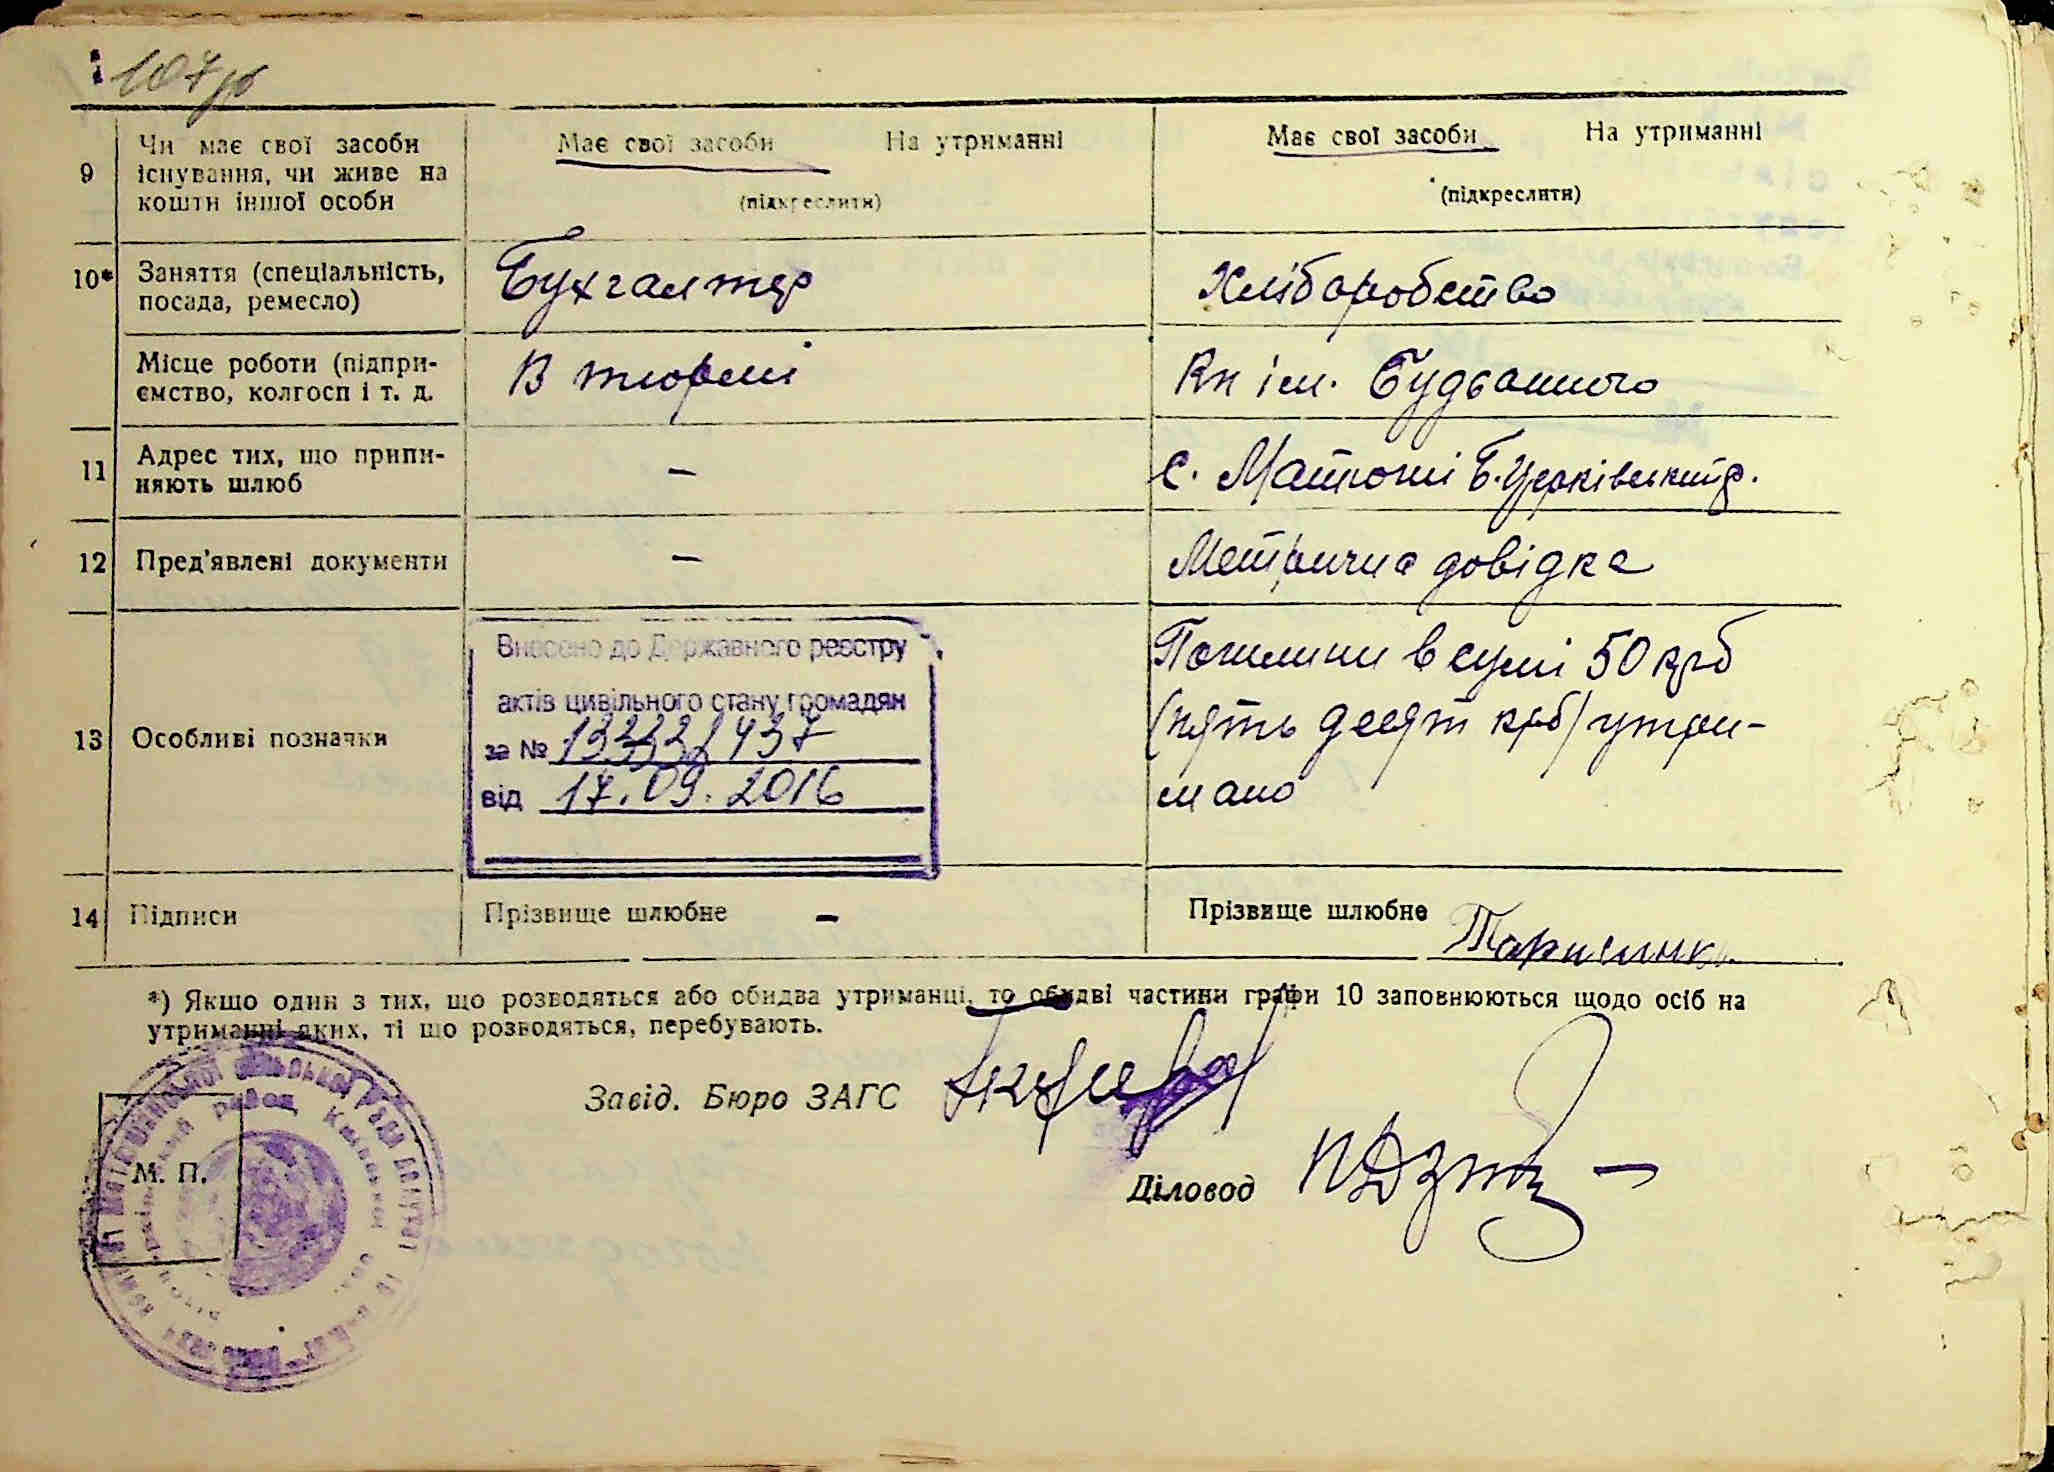 107
9
Чи має свої засоби існування, чи живе на кошти іншої особи
Має свої засоби На утриманні
(підкреслити)
Має свої засоби На утриманні
(підкреслити)
10*
Заняття (спеціальність,
посада, ремесло)
Бухгалтер
Хліборобство
Місце роботи (підпри-
ємство, колгосп і т. д.
В тюрмі
Кп ім. Будьонного
11
Адрес тих, що припи-
няють шлюб
—
с. Матюші Б. Церківського р.
12
Пред'явлені документи
—
Метрична довідка
13
Особливі позначки
Внесено до Державного реєстру
актів цивільного стану громадян
за № 133321437
від 17.09.2016
Пошлини в сумі 50 крб
(пять десят крб) утри-
мано
14
Підписи
Прізвище шлюбне —
Прізвище шлюбне
*) Якщо один з тих, що розводяться або обидва утриманці, то обидві частини графи 10 заповнюються щодо осіб на
утриманні яких, ті що розводяться, перебувають.
Завід. Бюро ЗАГС
Діловод
М. П.